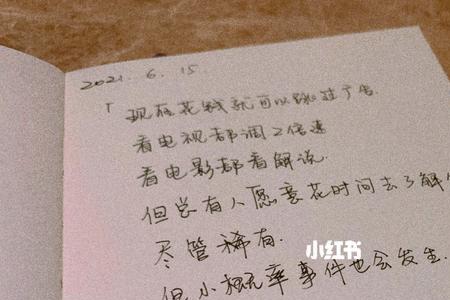 2021. 6. 15.
「现在花钱就可以跳过广告.
看电视都调2倍速
看电影都看解说.
但总有人愿意花时间去了解
尽管稀有.
小红书
但小概率事件也会发生.